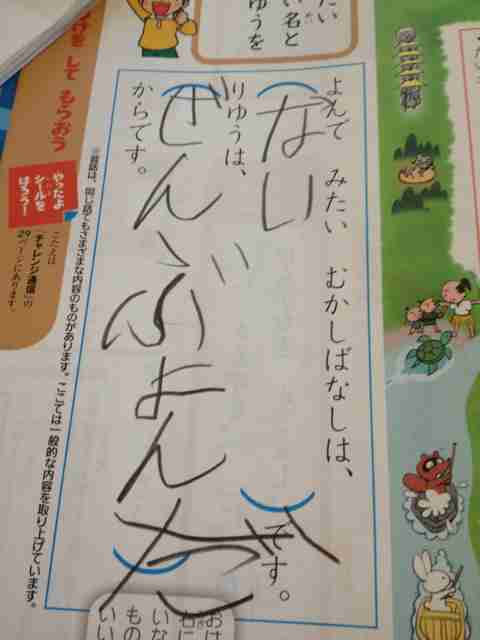 よんで みたい むかしばなしは、
ない
です。
りゆうは、
ぜんぶよんだ
からです。
※昔話は、同じ話でもさまざまな内容のものがあります。ここでは一般的な内容を取り上げています。
たい
い名と
ゆうを
して もらおう
やったよ
シールを
はろう!
こたえは
「チャレンジ通信」の
29ページにあります
おは
右に
いな
もの
いい